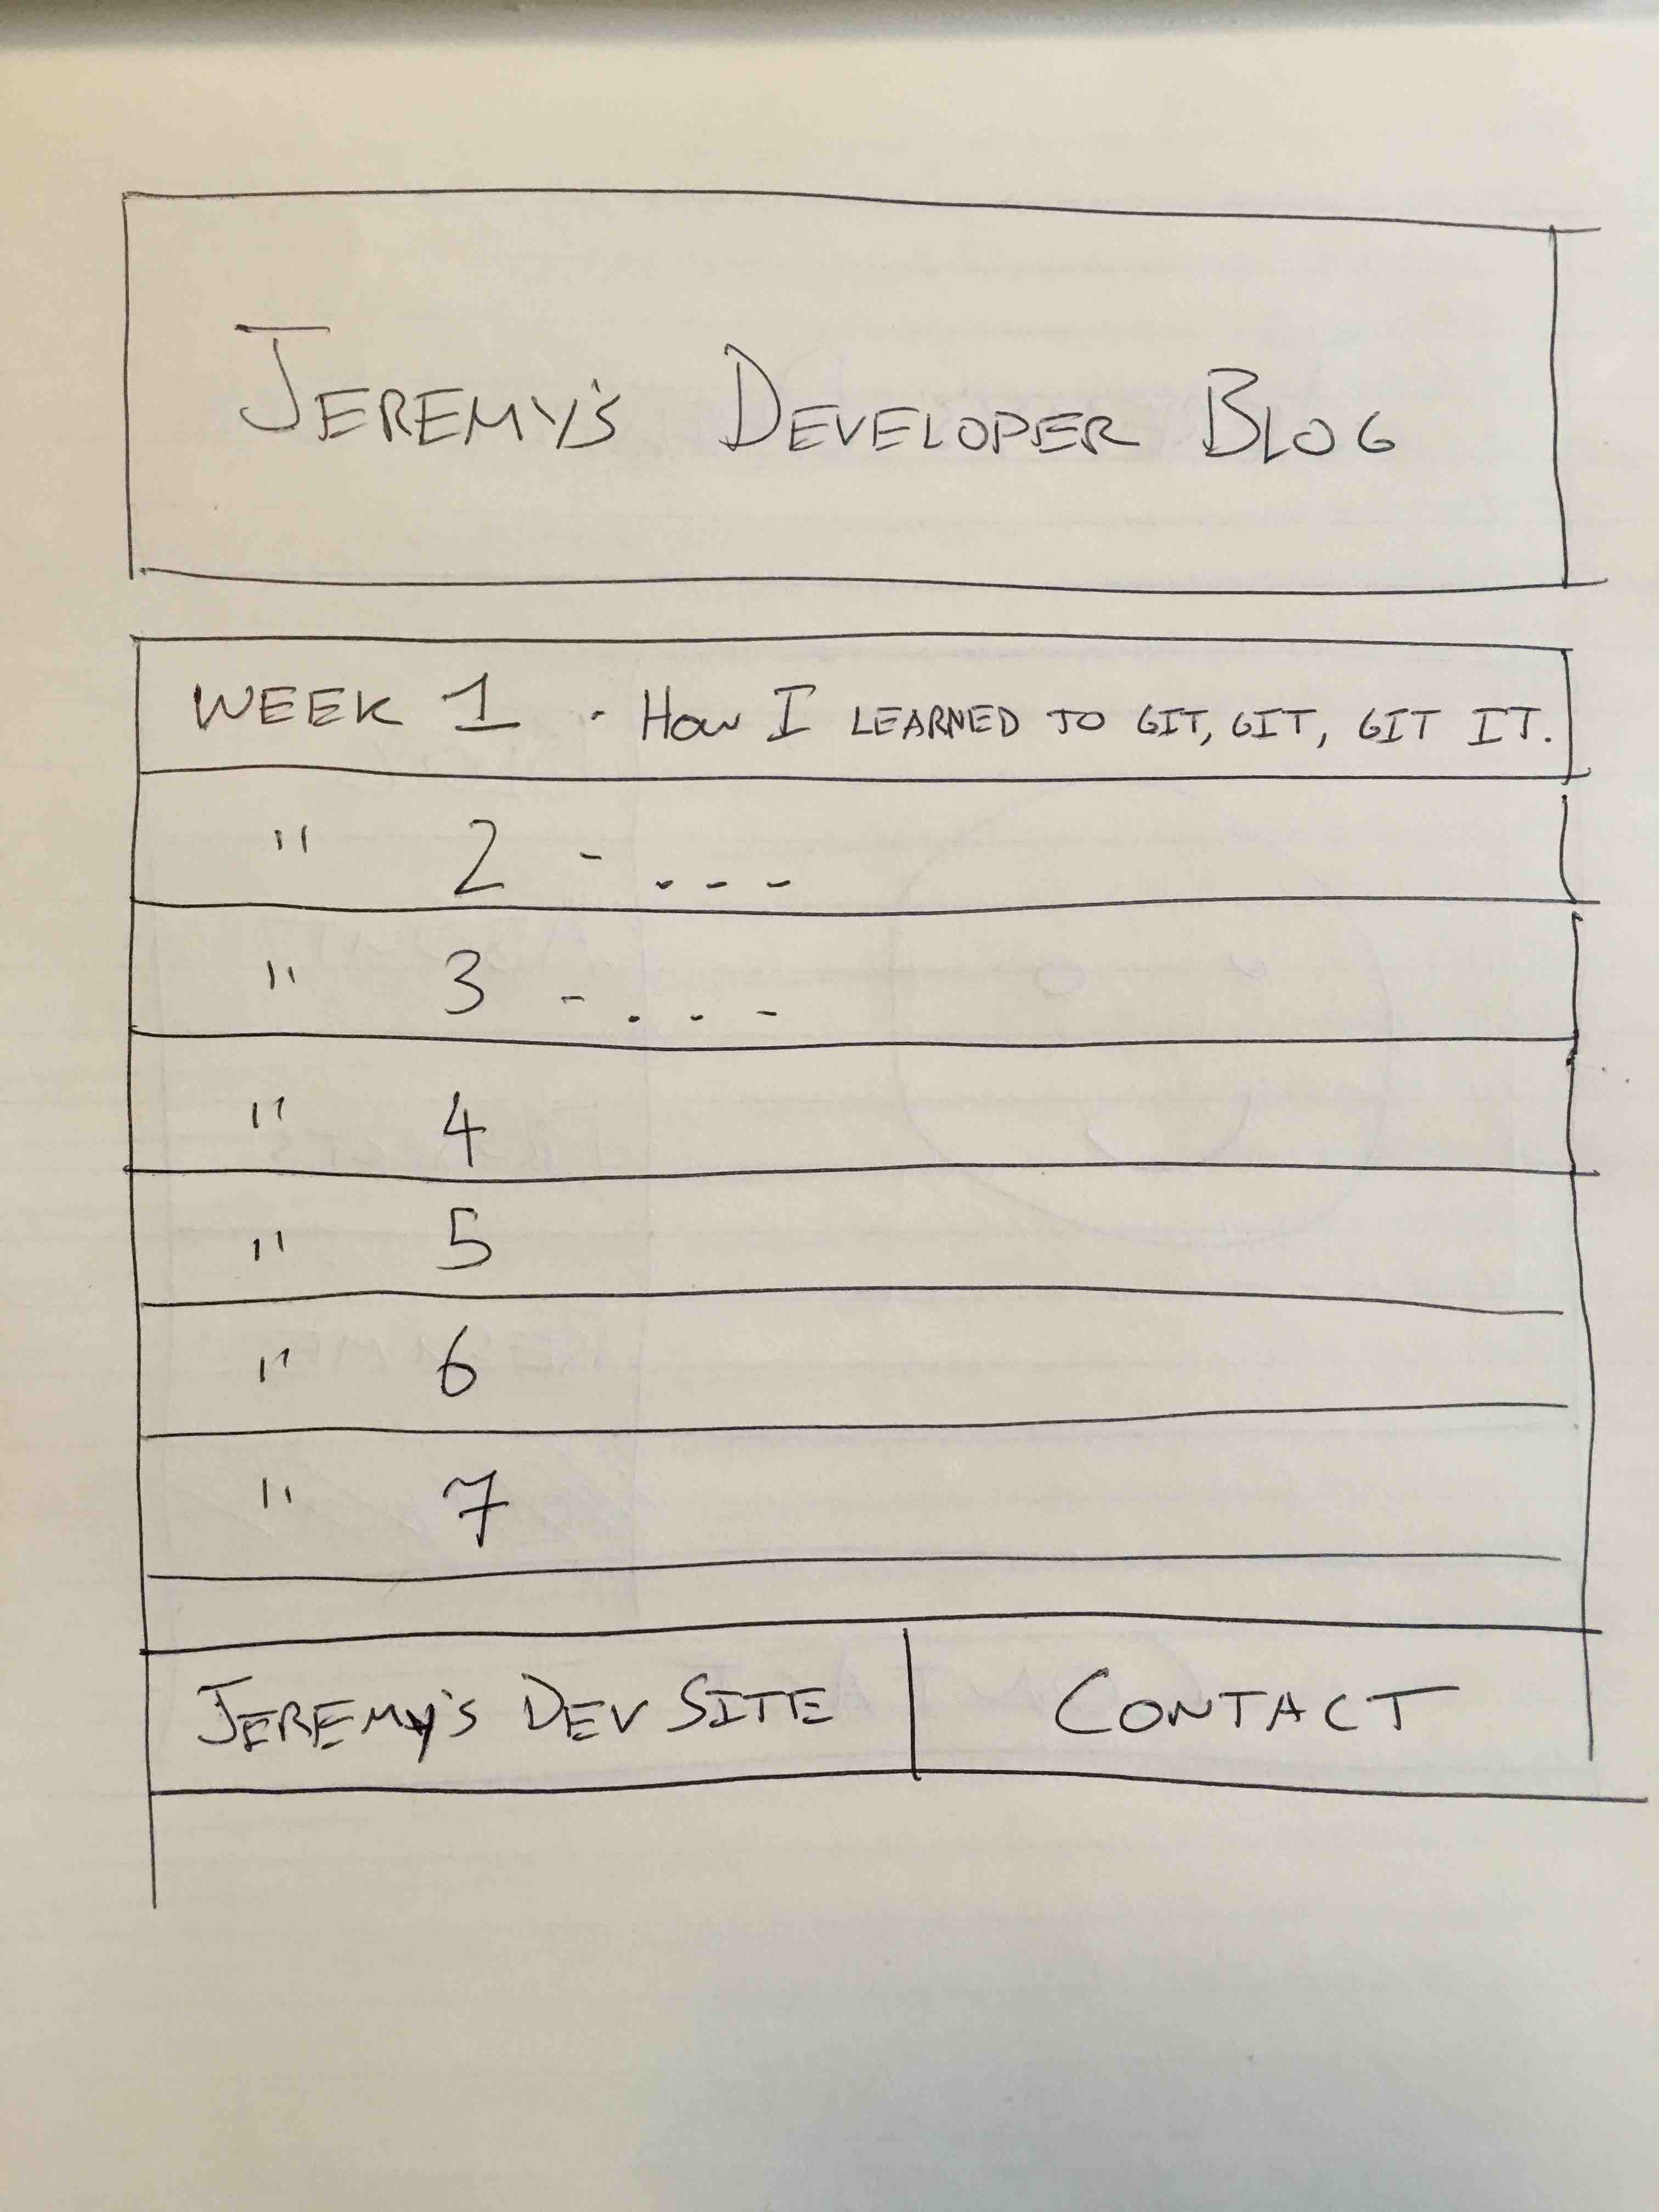 JEREMY'S DEVELOPER BLOG
WEEK 1 - HOW I LEARNED TO GIT, GIT, GIT IT.
" 2 - ...
" 3 - ...
" 4
" 5
" 6
" 7
JEREMY'S DEV SITE
CONTACT